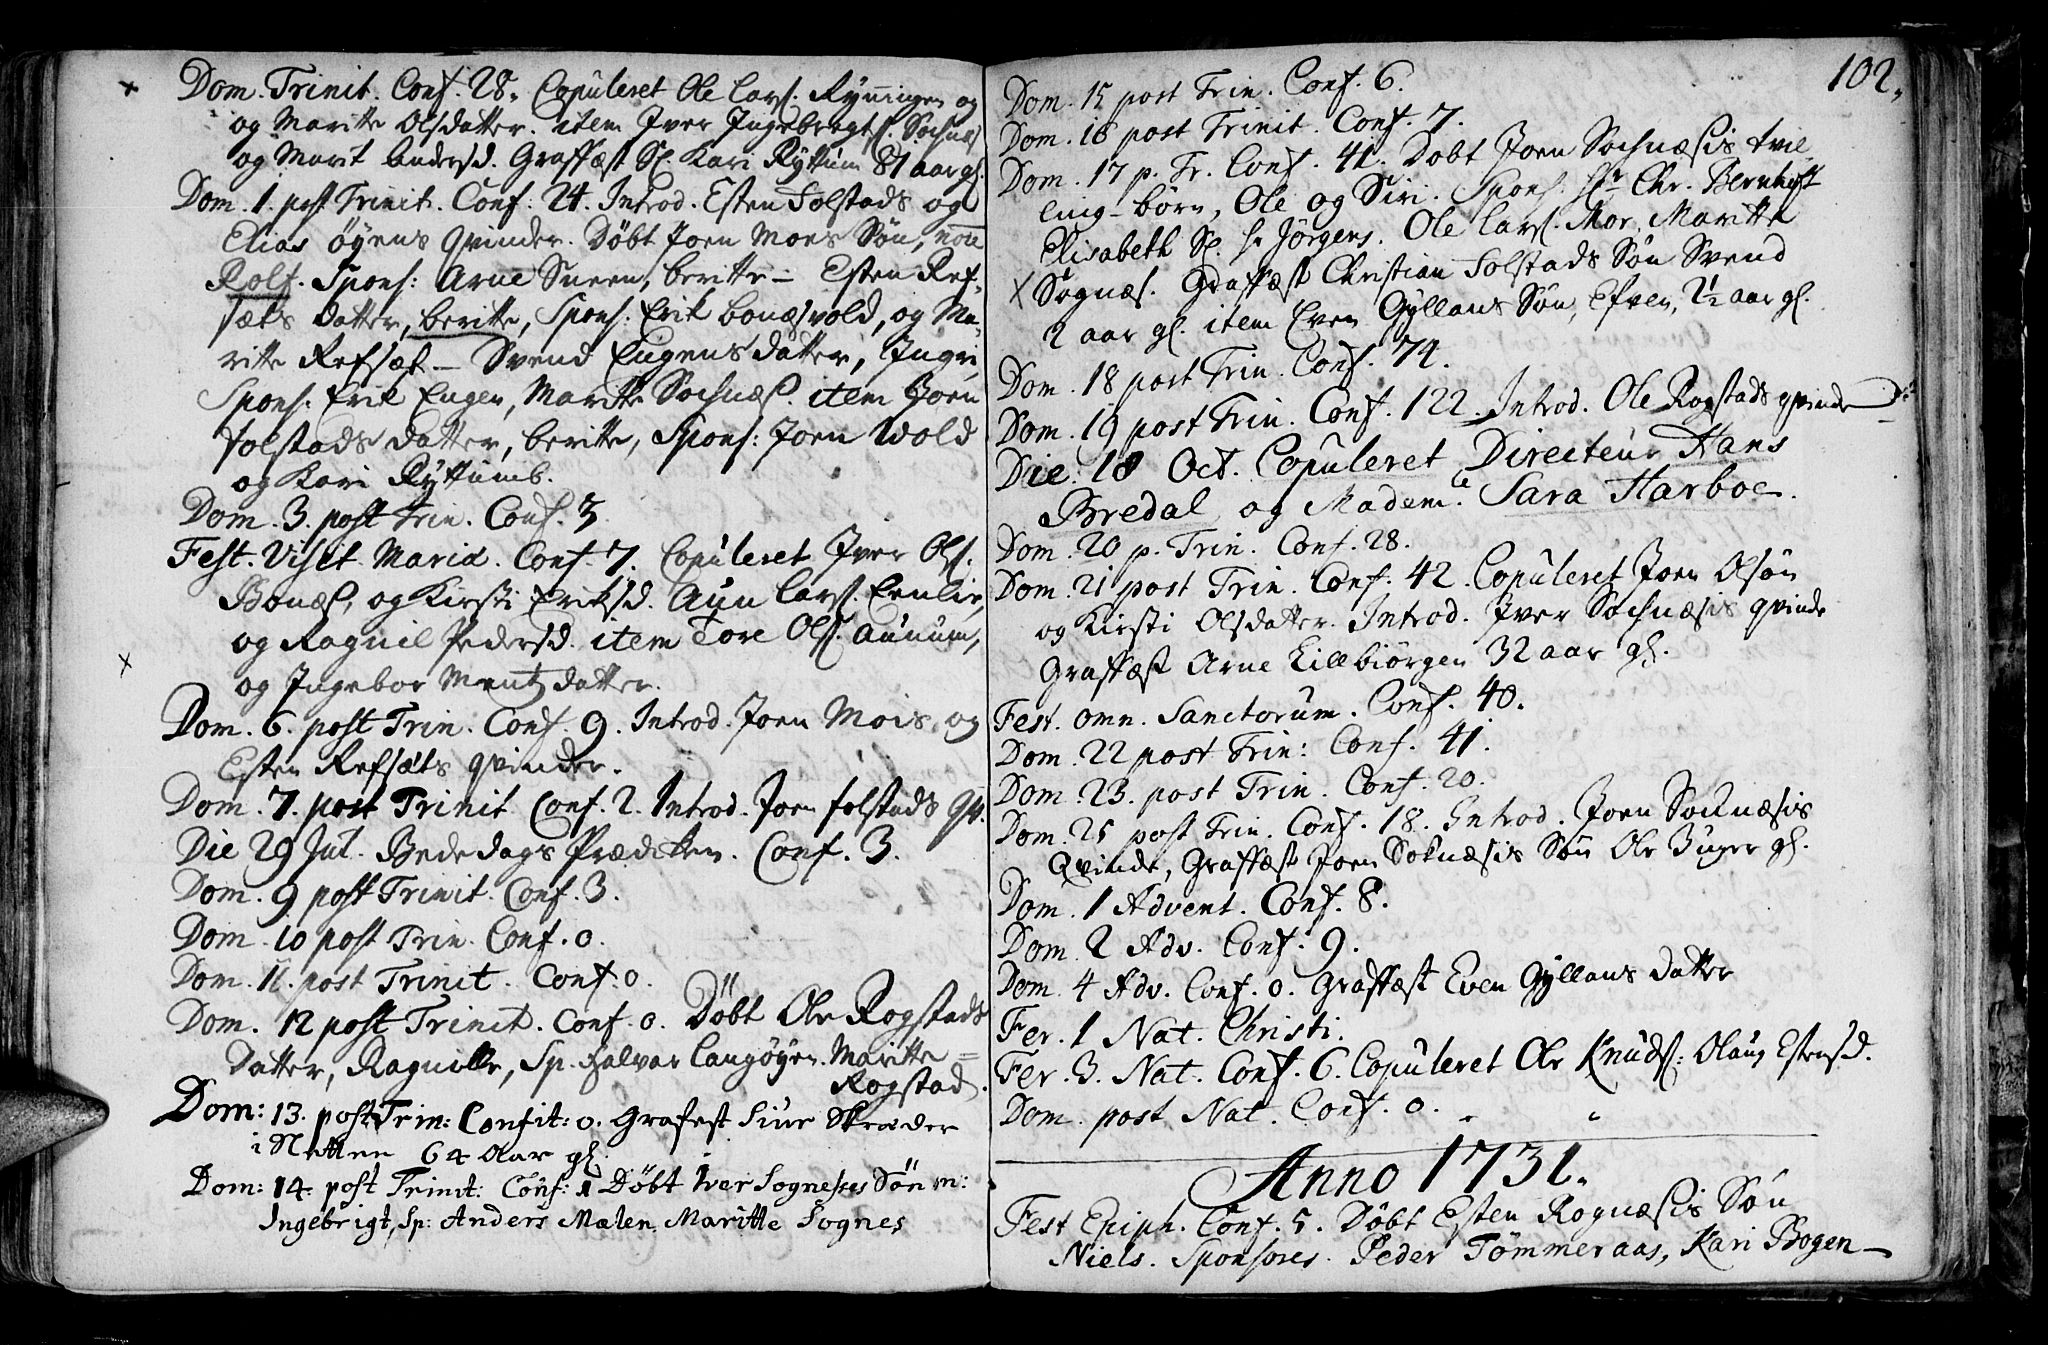 Dom. Trinit. Conf. 28. Copuleret Ole Lars. Rynningen og
og Maritte Olsdatter. item Iver Ingebregts. Sochnæs
og Marit Andersd. Graffæst Sl. Kari Ryttum 87 aar gl.
Dom. 1. post Trinit. Conf: 24. Introd. Esten Solstads og
Elias Øyens Qvinder. Döbt Joen Moes Sön, nom
Rolf. Spons: Arne Sneen, beritte – Esten Ref-
sæts datter, beritte, Spons: Erik bonæsvold, og Ma-
ritte Refsæt – Svend Eugens datter, Ingri,
Spons: Erik Eugen, Maritte Sochnæs. item Joen
Solstads datter, beritte, Spons: Joen Wold
og Kari Ryttumb.
Dom. 3. post Trin. Conf. 3
Fest. Visit. Mariæ. Conf. 7. Copuleret Iver Ols.
Bonæs, og Kirsti Eriksd. Aun Lars. Eenlie,
og Ragnil Pedersd. item Tore Ols. Aunum,
og Ingebor Mentzdatter.
Dom. 6. post Trin. Conf. 9. Introd. Joen Mois og
Esten Refsæts qvinder.
Dom. 7. post Trinit Conf. 2. Introd. Joen Solstads Qv.
Die 29 Jul. Bededags Prædiken. Conf. 3.
Dom. 9 post Trinit. Conf. 3.
Dom. 10 post Trin. Conf. 0.
Dom. 11. post Trinit. Conf. 0.
Dom. 12 post Trinit. Conf. 0. Döbt Ole Rogstads
datter, Ragnille, Sp. Halvar Langöyen. Maritte =
Rogstad.
Dom: 13. post Trin: Confit: 0. Grafest Siur Skræder
i 64 Aar gl.
Dom: 14. post Trinit: Conf: 1 Döbt Iver Sognesses Sön n:
Ingebrigt, Sp: Anders Mælen, Maritte Sognes
102,
Dom. 15 post Trin. Conf. 6.
Dom. 16 post Trinit. Conf. 7.
Dom. 17 p. Tr. Conf. 41. Dobt Joen Sochnæsis tvil
ling-börn, Ole og Siri. Spons. Hr Chr. Bernhoft
Elisabeth Sl. Hr Jörgens. Ole Lars. Mor. Maritte
Sognæs. Graffæst Christian Solstads Sön Svend
2 aar gl. item Even Gyllans Sön, Efven, 2½ aar gl.
Dom. 18 post Trin. Conf. 74.
Dom. 19 post Trin. Conf. 122. Introd. Ole Rogstads qvinde
Die 18 Oct. Copuleret Directeur Hans
Bredal og Madem.le Sara Harboe.
Dom. 20 p. Trin. Conf. 28.
Dom. 21 post Trin. Conf. 42. Copuleret Joen Olsön
og Kirsti Olsdatter. Introd. Iver Sochnæsis qvinde
Graffæst Arne Lillebiörgen 32 aar gl.
Fest. omn. Sanctorum. Conf. 40.
Dom. 22 post Trin: Conf. 41.
Dom. 23. post Trin. Conf. 20.
Dom. 25 post Trin. Conf. 18. Introd. Joen Soknæsis
Qvinde, Graffæst Joen Soknæsis Sön Ole 3 uger gl.
Dom. 1 Advent. Conf. 8.
Dom. 2 Adv. Conf. 9.
Dom. 4 Adv. Conf. 0. Graffæst Even Gyllans datter
Fer. 1 Nat. Christi.
Fer. 3. Nat. Conf. 6. Copuleret Ole Knuds: Olaug Estensd.
Dom. post Nat. Conf. 0.
Anno 1731.
Fest Epiph. Conf. 5. Döbt Esten Rognæsis Sön
Niels. Sponsores. Peder Tömmeraas, Kari Bogen –